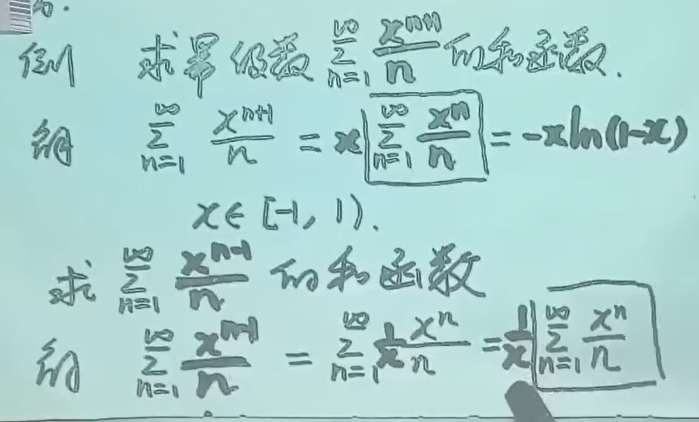 例 求幂级数 $\sum_{n=1}^{\infty} \frac{x^{n+1}}{n}$ 的和函数.
解 $\sum_{n=1}^{\infty} \frac{x^{n+1}}{n} = x \boxed{\sum_{n=1}^{\infty} \frac{x^n}{n}} = -x\ln(1-x)$
$x \in [-1, 1).$
求 $\sum_{n=1}^{\infty} \frac{x^{n-1}}{n}$ 的和函数
解 $\sum_{n=1}^{\infty} \frac{x^{n-1}}{n} = \sum_{n=1}^{\infty} \frac{1}{x} \frac{x^n}{n} = \frac{1}{x} \boxed{\sum_{n=1}^{\infty} \frac{x^n}{n}}$